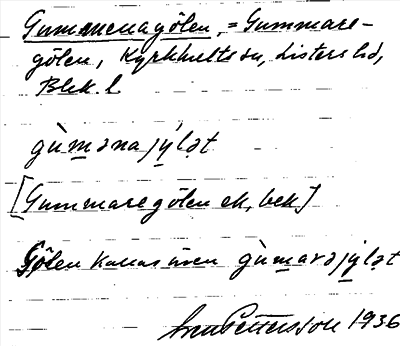 Gummenagölen, = Gummare-
gölen, Kyrkhults sn, Listers hd,
Blek. l
gùmǝnajy̆lǝt
[Gummaregölen ek, bek]
Gölen kallas även gùmarǝjy̆lǝt
Pettersson 1936